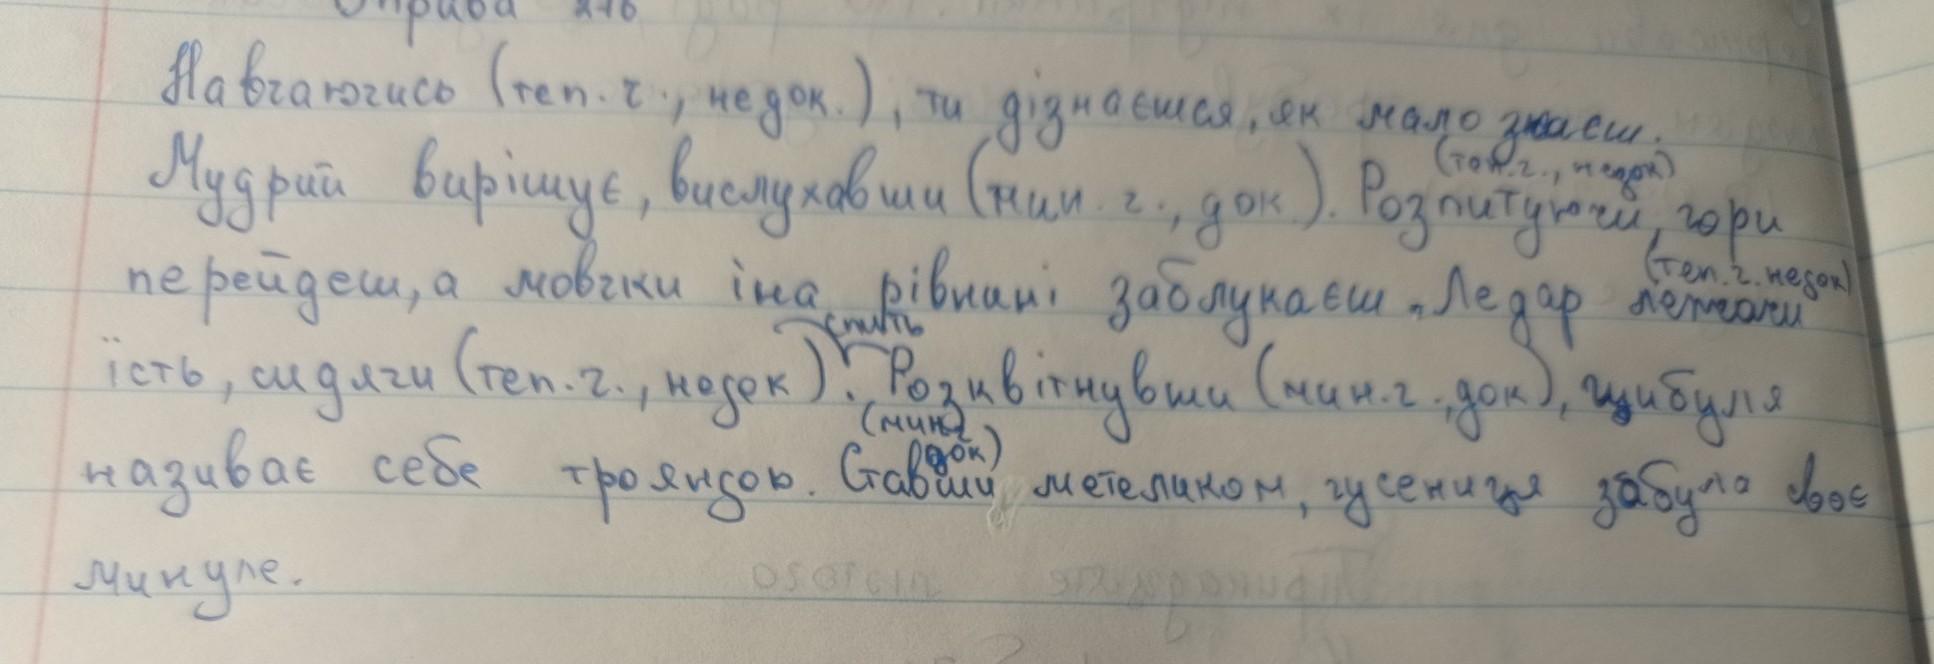 Вправа
Навчаючись (теп. ч., недок.), ти дізнаєшся, як мало знаєш.
Мудрий вирішує, вислухавши (мин. ч., док.). Розпитуючи, гори
(теп. ч., недок)
перейдеш, а мовчки і на рівнині заблукаєш. Ледар лежачи
(теп. ч. недок)
їсть, сидячи (теп. ч., недок) спить. Розквітнувши (мин. ч., док), цибуля
називає себе трояндою. Ставши метеликом, гусениця забула своє
(мин ч док)
минуле.